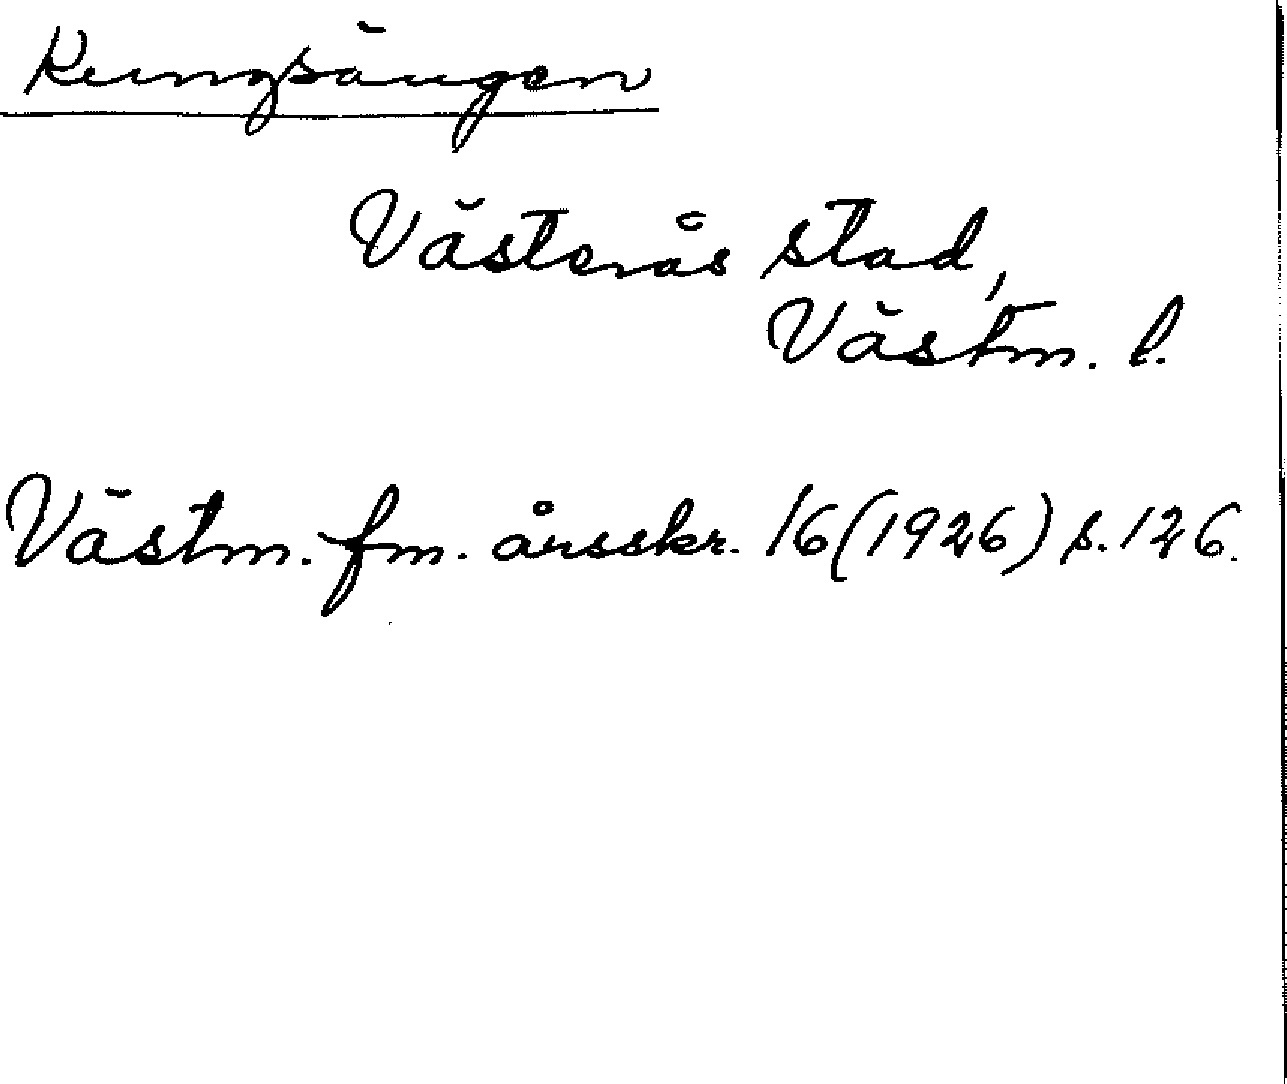 Kungsängen
Västerås stad,
Västm. l.
Västm. fm. årsskr. 16(1926) s. 126.